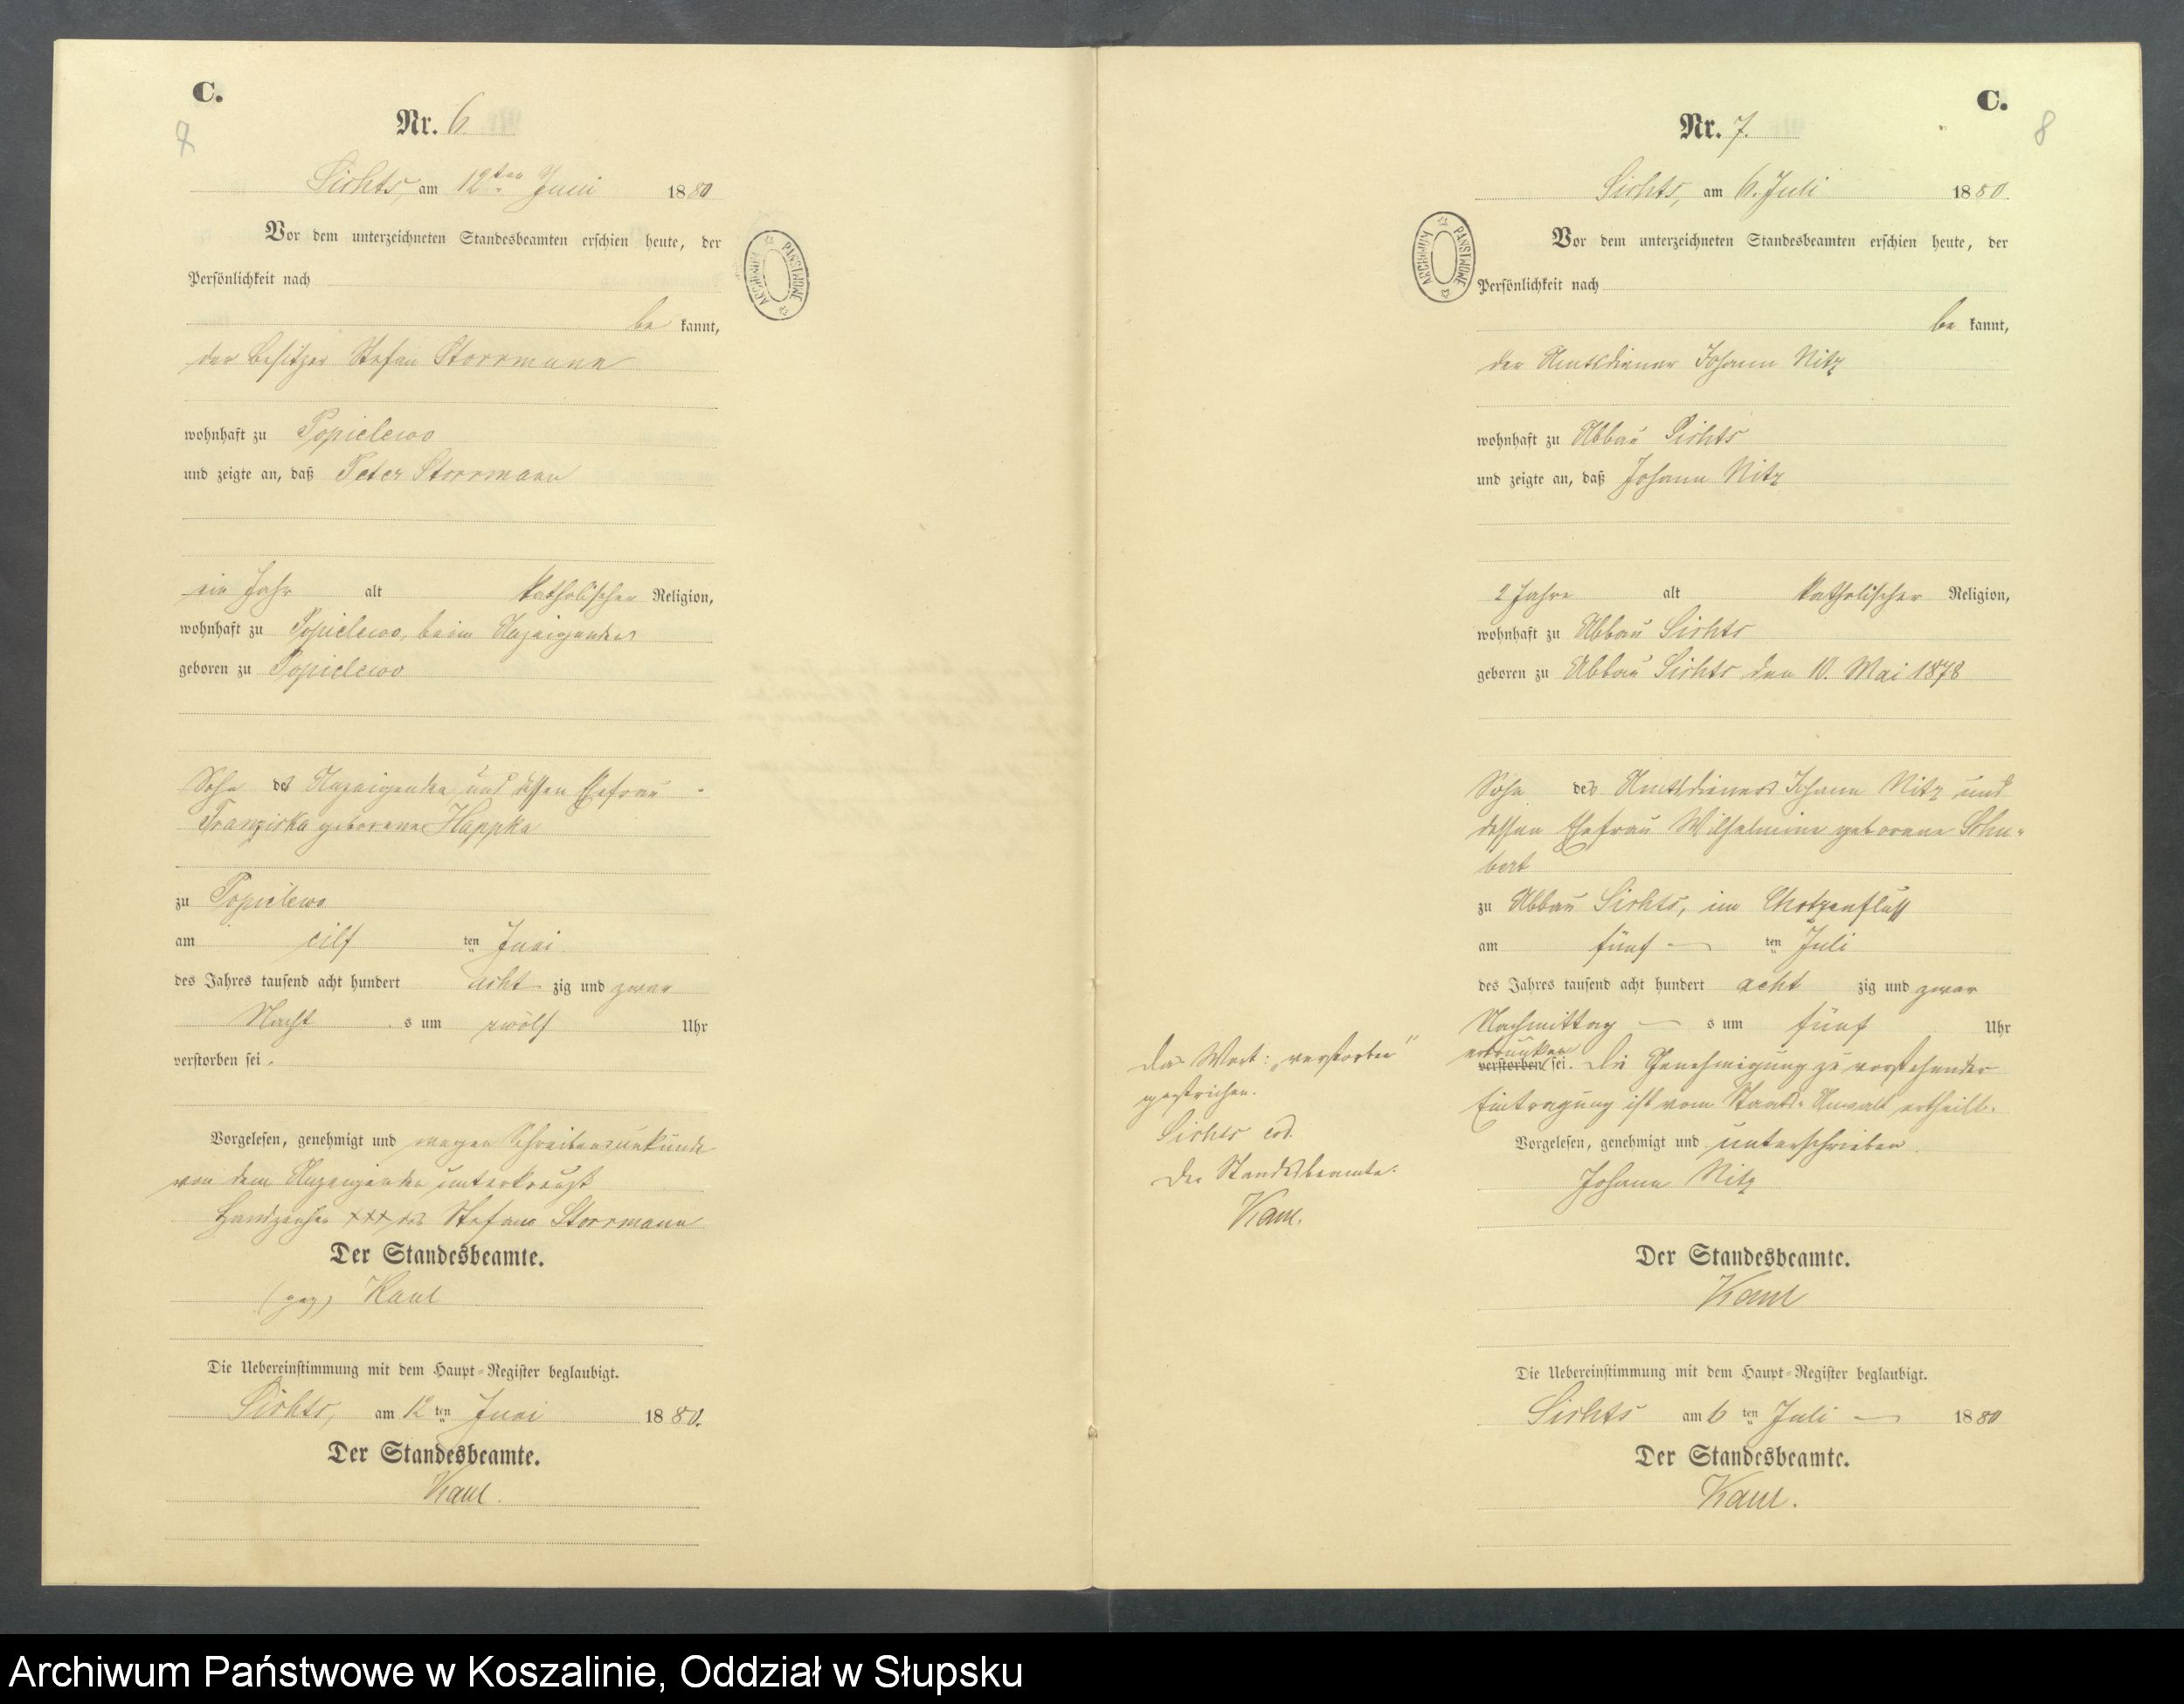 C.
7
Nr. 6
Lichts, am 12ten Juni 1880
Vor dem unterzeichneten Standesbeamten erschien heute, der
Persönlichkeit nach
be kannt,
der Besitzer Stefan Storrmann
wohnhaft zu Popielewo
und zeigte an, daß Peter Storrmann
ein Jahr alt katholischer Religion,
wohnhaft zu Popielewo, beim Anzeigenden
geboren zu Popielewo
Sohn des Anzeigenden und dessen Ehefrau
Franziska geborene Happka
zu Popielewo
am eilf ten Juni
des Jahres tausend acht hundert acht zig und zwar
Nacht s um zwölf Uhr
verstorben sei.
Vorgelesen, genehmigt und wegen Schreibensunkunde
von dem Anzeigenden unterkreuzt
Handzeichen XXX des Stefan Storrmann
Der Standesbeamte.
(gez) Kaul
Die Uebereinstimmung mit dem Haupt-Register beglaubigt.
Lichts, am 12 ten Juni 1880.
Der Standesbeamte.
Kaul.
ARCHIWUM PAŃSTWOWE
C.
8
Nr. 7.
Lichts, am 6. Juli 1880.
Vor dem unterzeichneten Standesbeamten erschien heute, der
Persönlichkeit nach
be kannt,
der Amtsdiener Johann Nitz
wohnhaft zu Abbau Lichts
und zeigte an, daß Johann Nitz
2 Jahre alt katholischer Religion,
wohnhaft zu Abbau Lichts
geboren zu Abbau Lichts den 10. Mai 1878
Sohn des Amtsdieners Johann Nitz und
dessen Ehefrau Wilhelmine geborene Schu-
bert
zu Abbau Lichts, im Chotzenfluß
am fünf ten Juli
des Jahres tausend acht hundert acht zig und zwar
Nachmittag s um fünf Uhr
ertrunken
verstorben sei. Die Genehmigung zu vorstehender
Eintragung ist vom Staats-Anwalt ertheilt.
Vorgelesen, genehmigt und unterschrieben.
Johann Nitz
Der Standesbeamte.
Kaul
Die Uebereinstimmung mit dem Haupt-Register beglaubigt.
Lichts am 6 ten Juli 1880
Der Standesbeamte.
Kaul.
Das Wort: "verstorben"
gestrichen.
Lichts eod.
Der Standesbeamte:
Kaul.
ARCHIWUM PAŃSTWOWE
Archiwum Państwowe w Koszalinie, Oddział w Słupsku